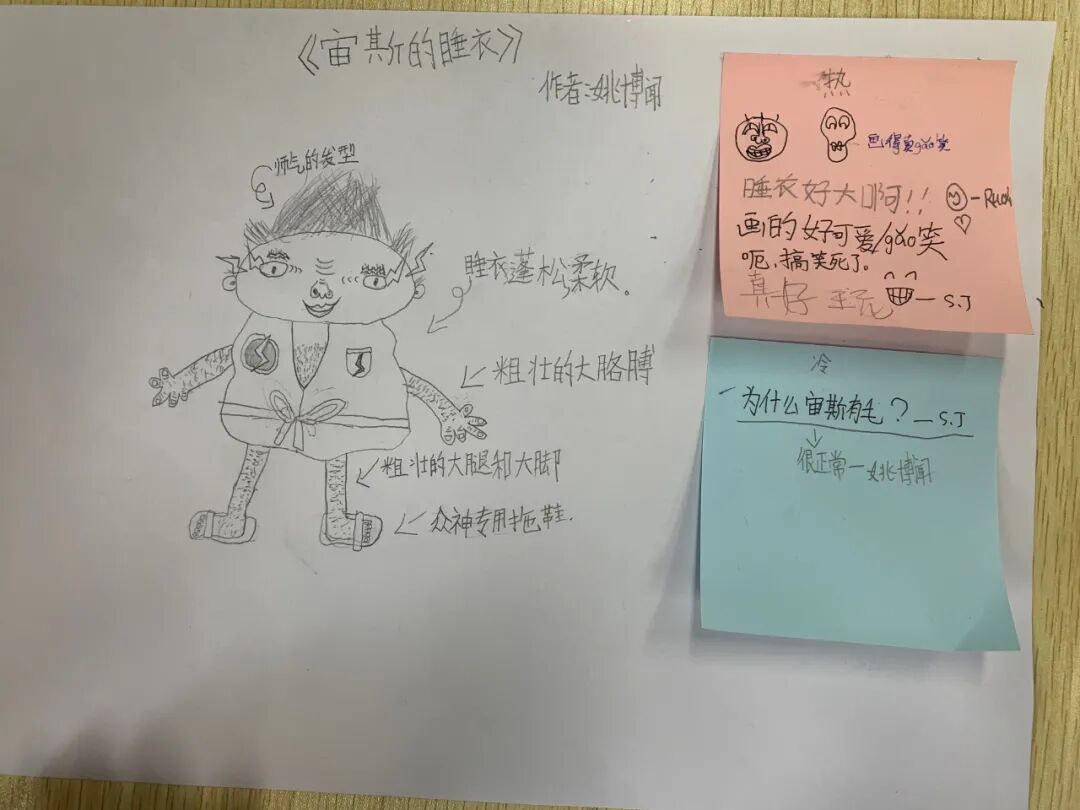 《宙斯的睡衣》
作者:姚博闻
帅气的发型
睡衣蓬松柔软。
粗壮的大胳膊
粗壮的大腿和大脚
众神专用拖鞋.
热
画得真gǎo笑
睡衣好大啊!!
画的好可爱/gǎo笑
呃,搞笑死了。
真好
—S.J
冷
为什么宙斯有毛?—S.J
很正常—姚博闻